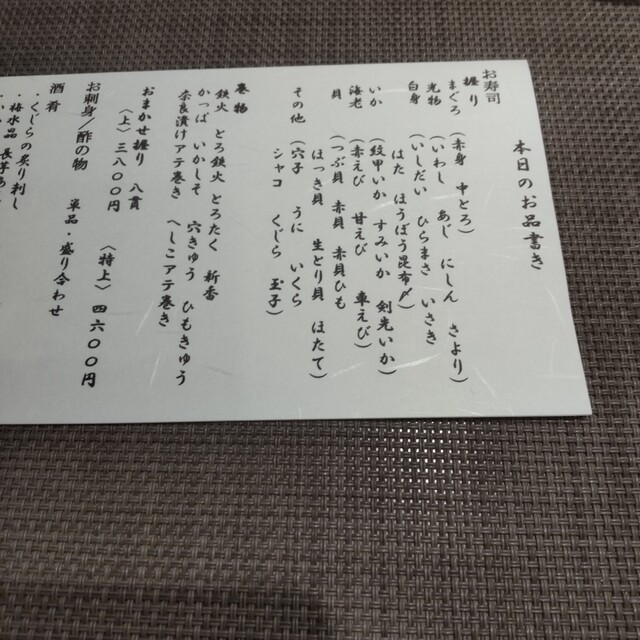 本日のお品書き
お寿司
握り
まぐろ （赤身 中とろ）
光物 （いわし あじ にしん さより）
白身 （いしだい ひらまさ いさき
はた ほうぼう昆布〆）
いか （紋甲いか すみいか 剣先いか）
海老 （赤えび 甘えび 車えび）
貝 （つぶ貝 赤貝 赤貝ひも
ほっき貝 生とり貝 ほたて）
その他 （穴子 うに いくら
シャコ くじら 玉子）
巻物
鉄火 とろ鉄火 とろたく 新香
かっぱ いかしそ 穴きゅう ひもきゅう
奈良漬けアテ巻き へしこアテ巻き
おまかせ握り 八貫
（上）三八００円 （特上）四六００円
お刺身／酢の物 単品・盛り合わせ
酒肴
・くじらの炙り刺し
・梅水晶